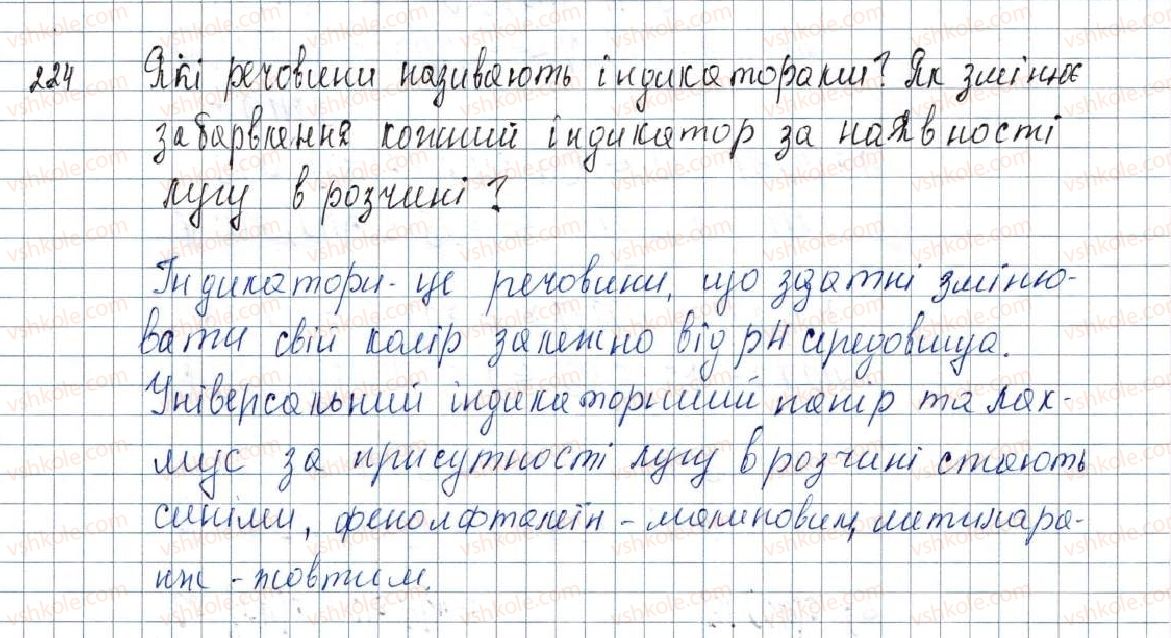 224 Які речовини називають індикаторами? Як змінює
забарвлення кожний індикатор за наявності
лугу в розчині?
Індикатори - це речовини, що здатні зміню-
вати свій колір залежно від pH середовища.
Універсальний індикаторний папір та лак-
мус за присутності лугу в розчині стають
синіми, фенолфталеїн - малиновим, метилора-
нж - жовтим.